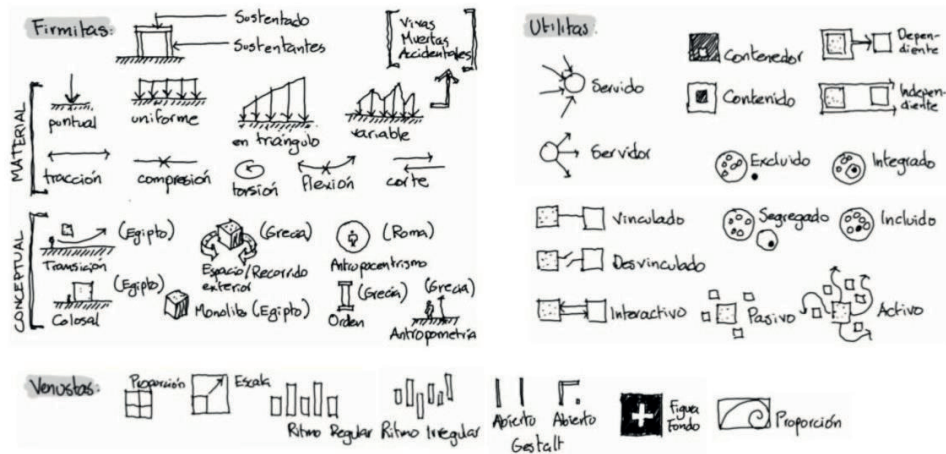 Firmitas:
Sustentado
Sustentantes
Vivas
Muertas
Accidentales
MATERIAL
puntual
uniforme
en triángulo
variable
tracción
compresión
torsión
flexión
corte
CONCEPTUAL
(Egipto)
Transición
(Grecia)
Espacio/Recorrido
exterior
(Roma)
Antropocentrismo
(Egipto)
Colosal
Monolito (Egipto)
(Grecia)
Orden
(Grecia)
Antropometría
Utilitas:
Servido
Contenedor
Depen-
diente
Contenido
Indepen-
diente
Servidor
Excluido
Integrado
Vinculado
Segregado
Incluido
Desvinculado
Interactivo
Pasivo
Activo
Venustas:
Proporción
Escala
Ritmo Regular
Ritmo Irregular
Abierto
Abierto
Gestalt
Figura
Fondo
Proporción